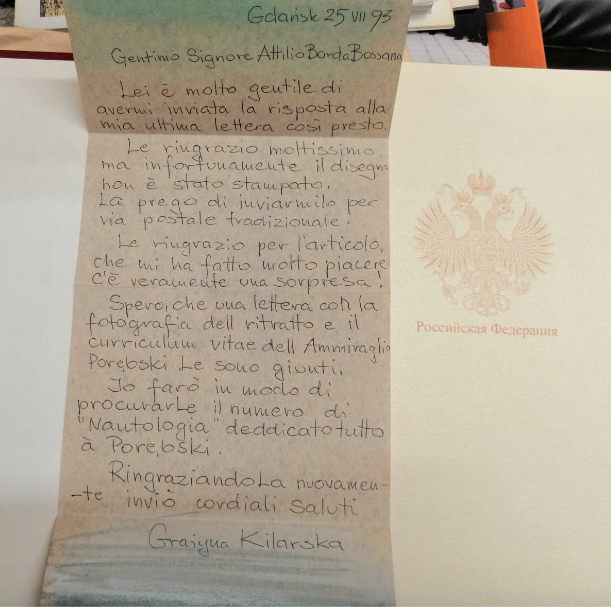 Gdańsk 25 VII 93
Gentimo Signore Attilio Borda Bossana
Lei è molto gentile di
avermi inviata la risposta alla
mia ultima lettera così presto.
Le ringrazio moltissimo
ma infortunamente il disegno
non è stato stampato.
La prego di inviarmilo per
via postale tradizionale.
Le ringrazio per l'articolo,
che mi ha fatto molto piacere
c'è veramente una sorpresa!
Spero, che una lettera con la
fotografia dell ritratto e il
curriculum vitae dell Ammiraglio
Porębski Le sono giunti.
Io farò in modo di
procurarLe il numero di
"Nautologia" deddicato tutto
à Porębski.
RingraziandoLa nuovamen-
-te inviò cordiali saluti
Grażyna Kilarska
Российская Федерация